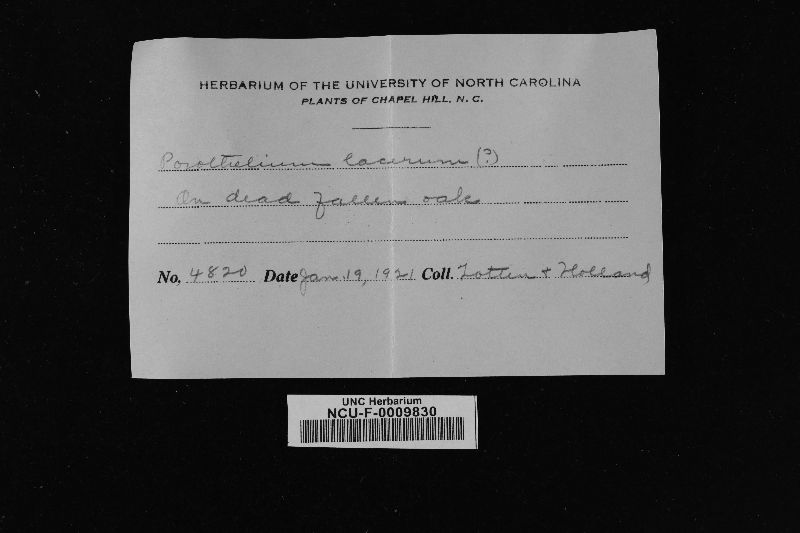 HERBARIUM OF THE UNIVERSITY OF NORTH CAROLINA
PLANTS OF CHAPEL HILL, N. C.
Porothelium lacerum (?)
On dead fallen oak
No. 4820 Date Jan. 19, 1921 Coll. Totten + Holland
UNC Herbarium
NCU-F-0009830